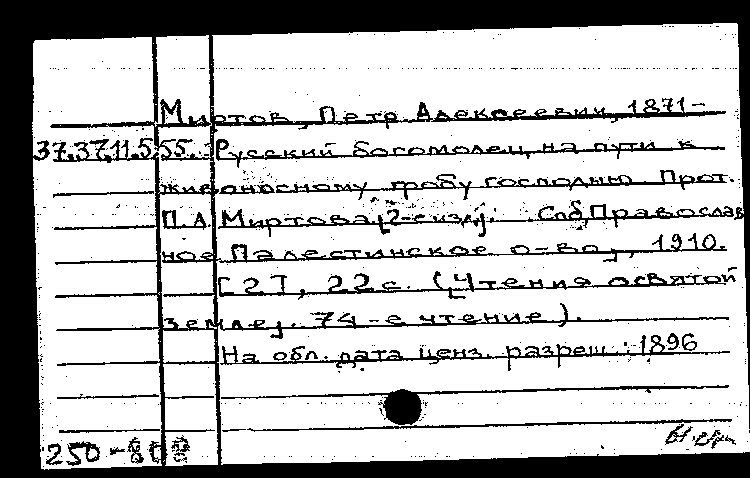 Миртов, Петр Алексеевич, 1871-
37.37.11.5.55. Русский богомолец на пути к
живоносному гробу господню Прот.
П. А Миртова, [2-е изд.]. Спб, Православ
ное Палестинское о-во, 1910.
[2], 22 с. (Чтения о святой
земле. 74-е чтение).
На обл. дата ценз. разреш.: 1896
250-808